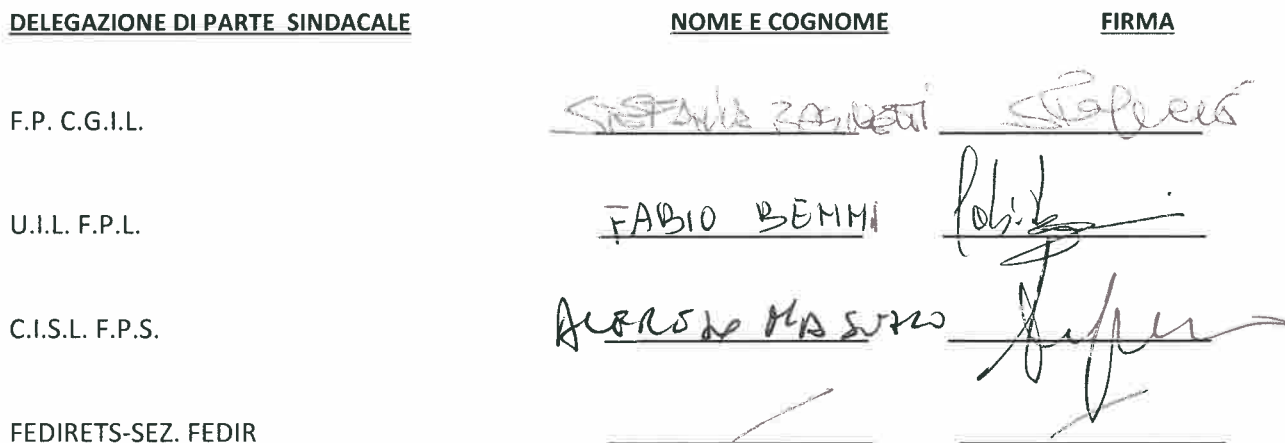 DELEGAZIONE DI PARTE SINDACALE NOME E COGNOME FIRMA
F.P. C.G.I.L. STEFANIA
U.I.L. F.P.L. FABIO BEMMI
C.I.S.L. F.P.S. ALFREDO MASUZZO
FEDIRETS-SEZ. FEDIR